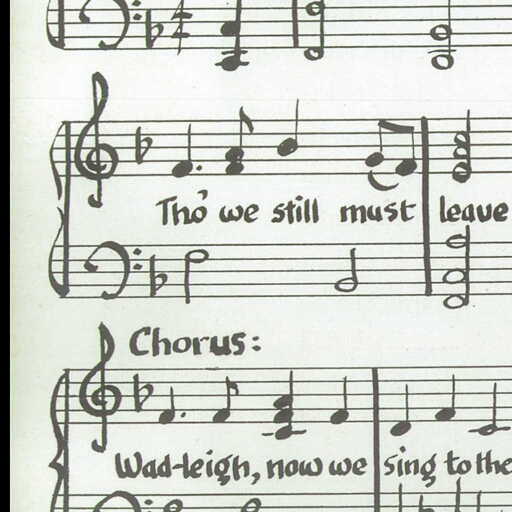 Tho' we still must leave
Chorus:
Wad-leigh, now we sing to the